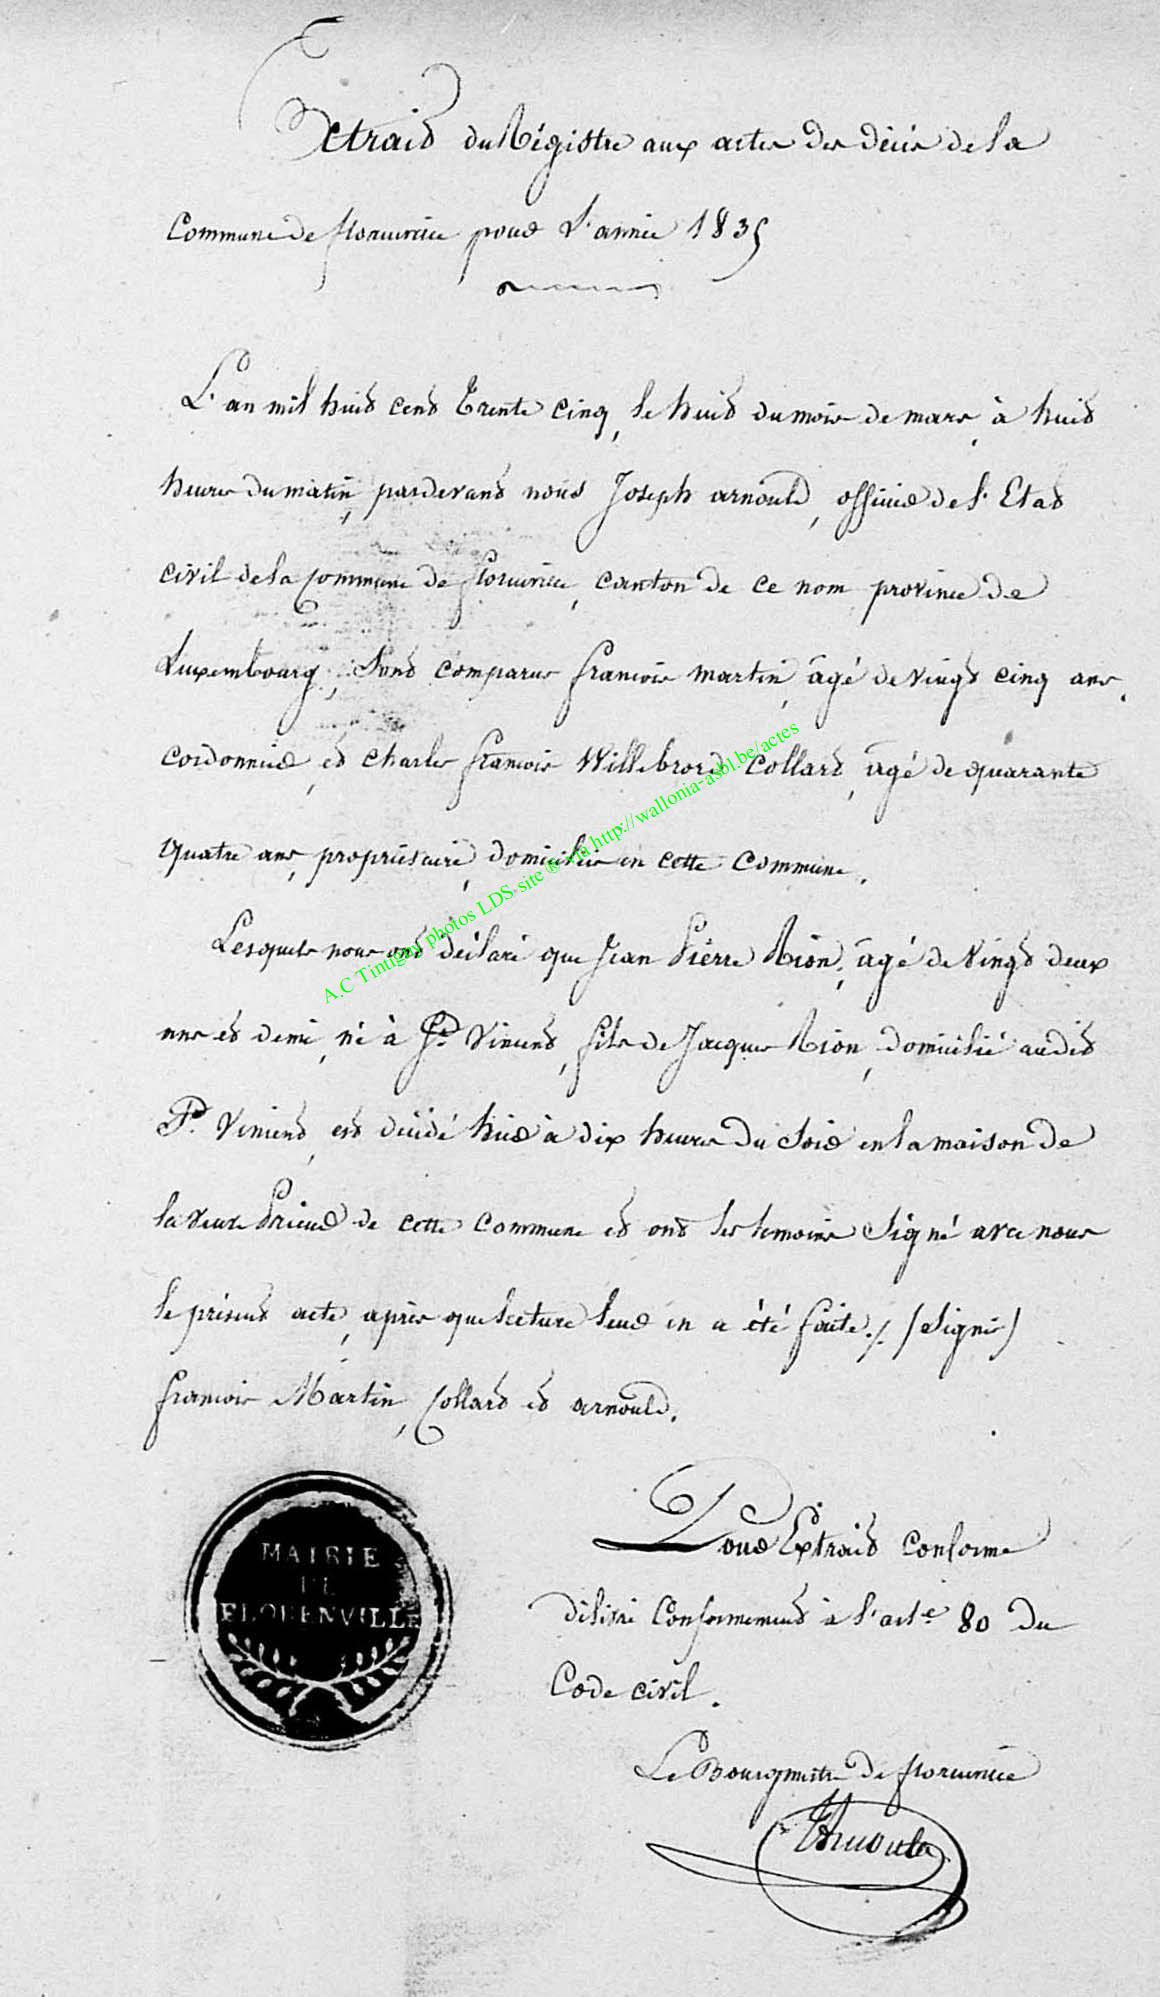 Extrait du Régistre aux actes des décès de la
Commune de florenville pour L'année 1835
L'an mil huit cent trente cinq, le huit du mois de mars, à huit
heures du matin, pardevant nous Joseph arnould, officier de l'Etat
civil de la Commune de florenville, canton de ce nom province de
Luxembourg, Sont comparus francois martin, âgé de vingt cinq ans,
cordonnier, et charles francois Willebrord Collard, âgé de quarante
quatre ans, propriétaire, domiciliés en cette Commune.
Lesquels nous ont déclaré que Jean Pierre Rion, âgé de vingt deux
ans et demi, né à St. Vincent, fils de Jacques Rion, domicilié audit
St. Vincent, est décédé hier à dix heures du Soir en la maison de
la veuve Prieur de cette commune et ont les temoins Signé avec nous
le présent acte, après que lecture leur en a été faite ./. (Signés)
francois Martin, Collard et arnould.
MAIRIE
DE
FLORENVILLE
Pour Extrait conforme
délivré Conformement à l'arte 80 du
Code civil.
Le Bourgmestre de florenville
JArnould
A.C Tintigny photos LDS-site ® via http://wallonia-asbl.be/actes